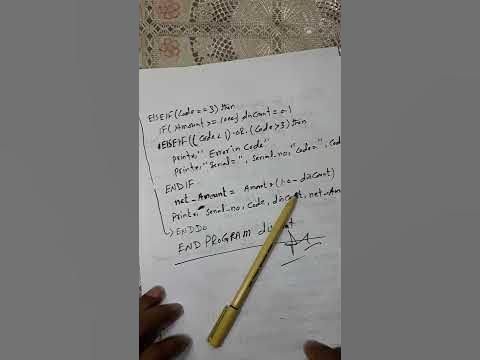 ELSEIF (Code == 3) then
IF ( Amount >= 1000) discount = 0.1
ELSEIF (( Code < 1) .OR. (Code > 3) then
print*, " Error in Code"
print*, "Serial = ", serial_no, "Code = ", Code
ENDIF
net_Amount = Amount * (1.0 - discount)
print*, serial_no, Code, discount, net_Am
ENDDO
END PROGRAM